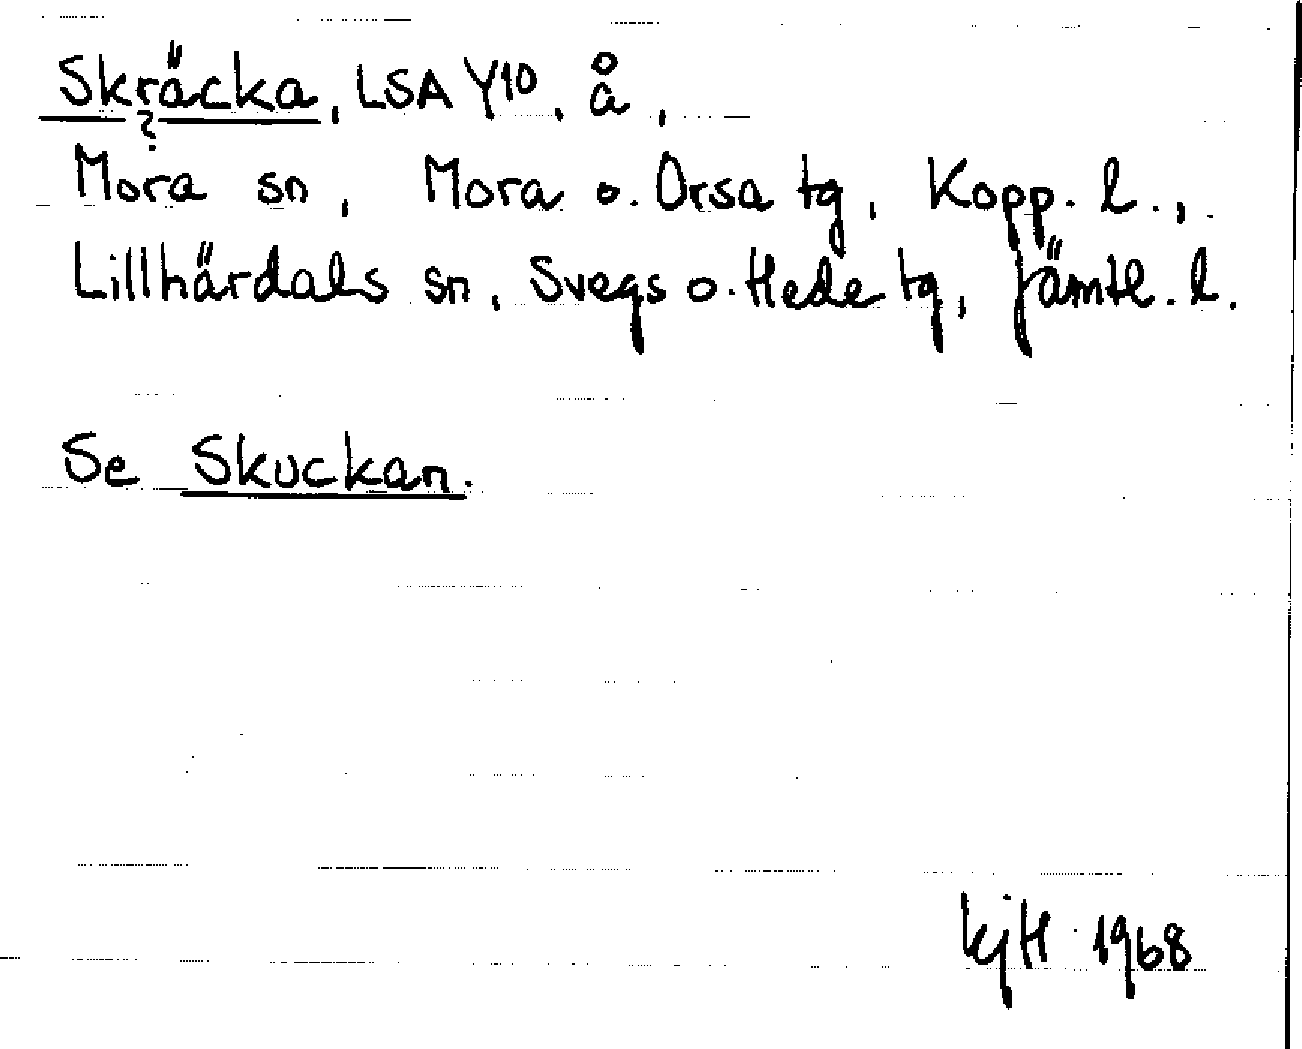 Skräcka, LSA Y10, å,
?
Mora sn, Mora o. Orsa tg, Kopp. l.,
Lillhärdals sn, Svegs o. Hede tg, Jämtl. l.
Se Skuckan.
KjH 1968